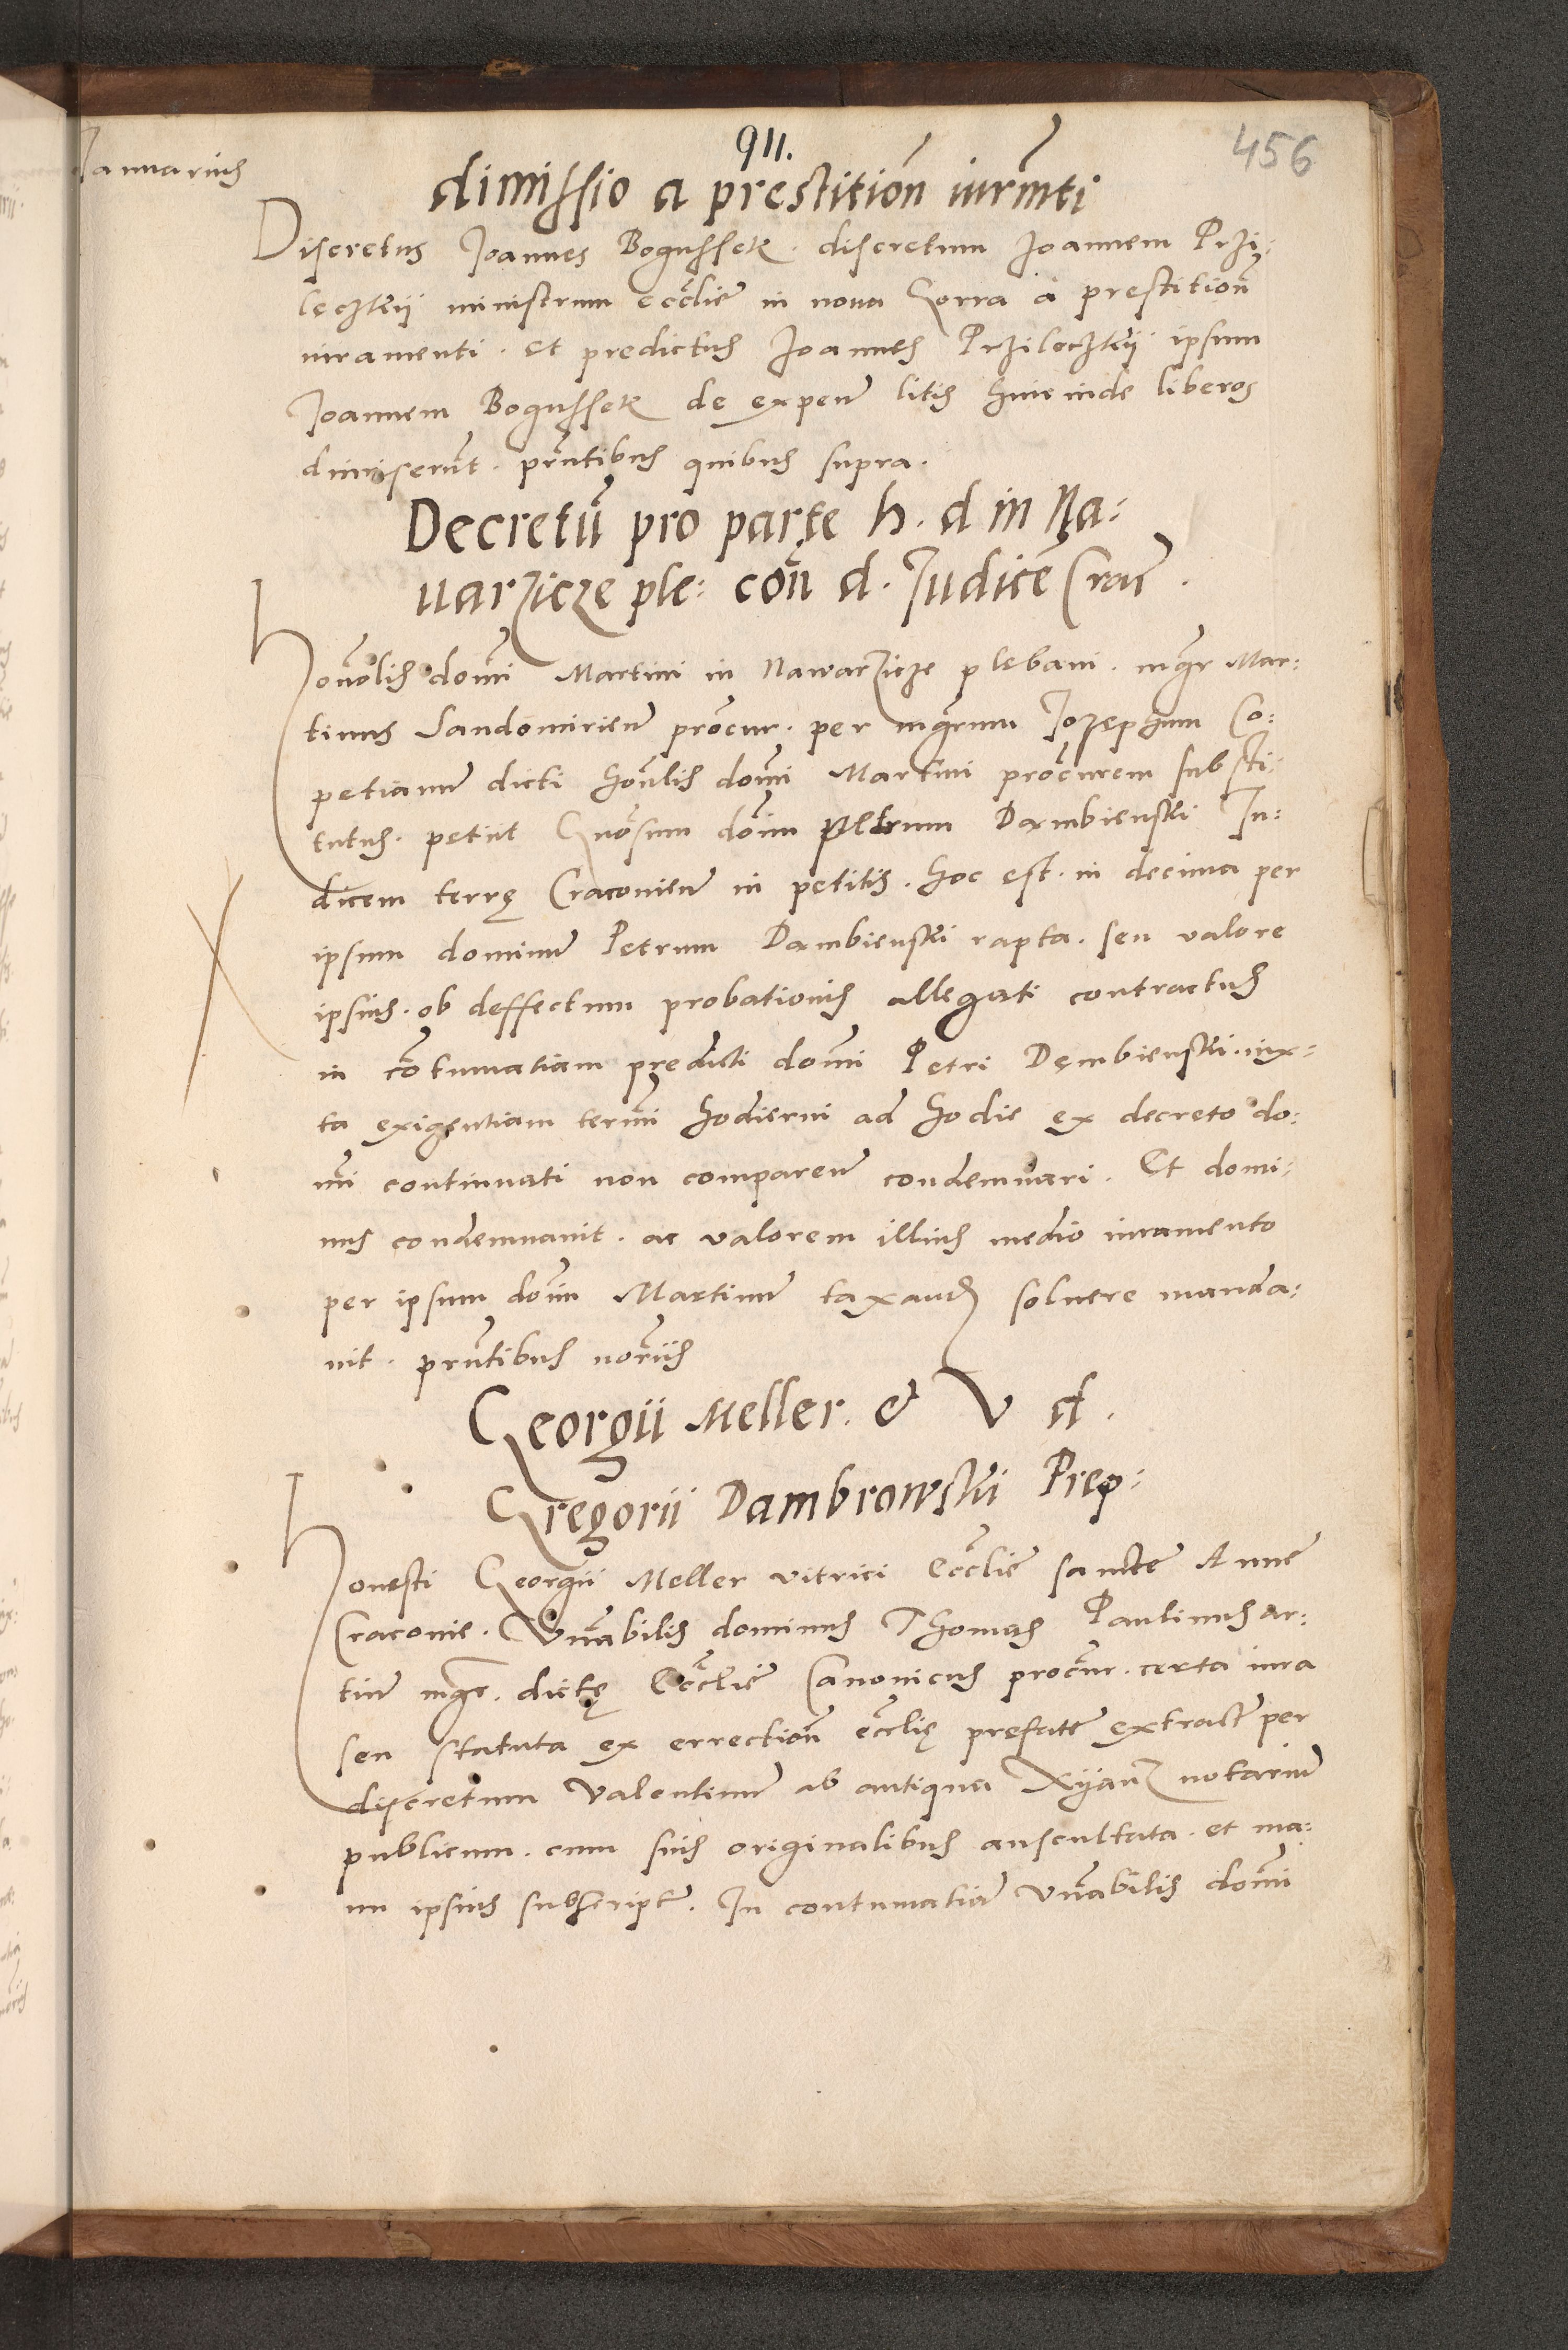 911.
456
Januarius
dimissio a prestition̄ iurm̄ti
Discretus Joannes Bogussek. discretum Joannem Przi-
leczkij ministrum ecclīe in noua Gorra a prestition̄
iuramenti. et predictus Joannes Przileczkij ipsum
Joannem Bogussek de expen̄ litis hincinde liberos
dimiserūt. prn̄tibus quibus supra.
Decretū pro parte h. d in Na:
uarzicze ple: con̄ d. Judicē Crac̄.
Honōlis domi Martini in Nawarzicze plebani. mgr̄ Mar:
tinus Sandomirien̄ procur. per mgr̄um Jozephum Co:
petianū dicti hon̄lis domi Martini procurem substi:
tutus. petiit Gn̄osum dom̄ Petrum Dambienski Ju:
dicem terrę Cracovien̄ in petitis. hoc est. in decima per
ipsum dominū Petrum Dambienski rapta. seu valore
ipsius. ob deffectum probationis allegati contractus
in cōtumatiam predicti dom̄i Petri Dęmbienski. iux:
ta exigentiam termi hodierni ad hodie ex decreto do:
m̄i continuati non comparen̄ condemnari. Et domi:
nus condemnauit. ac valorem illius medio iuramento
per ipsum dom̄ Martinū taxand solvere manda:
uit. prn̄tibus norīis
Georgii Meller. & V d.
Gregorii Dambrowskii Prep:
Honesti Georgii Meller vitrici Ecclīe sancte Anne
Cracovie. Vn̄abilis dominus Thomas Paulinus ar:
tiū mgr. dictę Ecclīe Canonicus procur. certa iura
seu statuta ex errection̄ eccl̄ię prefate extract per
discretum Valentinū ab antiqua Xyanz notariū
publicum. cum suis originalibus auscultata. et ma:
nu ipsius subscript. In contumatiā Vn̄abilis dom̄i